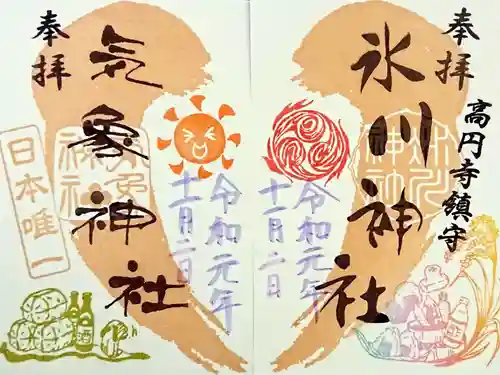 高円寺鎮守
奉拝
氷川神社
令和元年
十一月二日
奉拝
気象神社
令和元年
十一月二日
日本唯一
酒